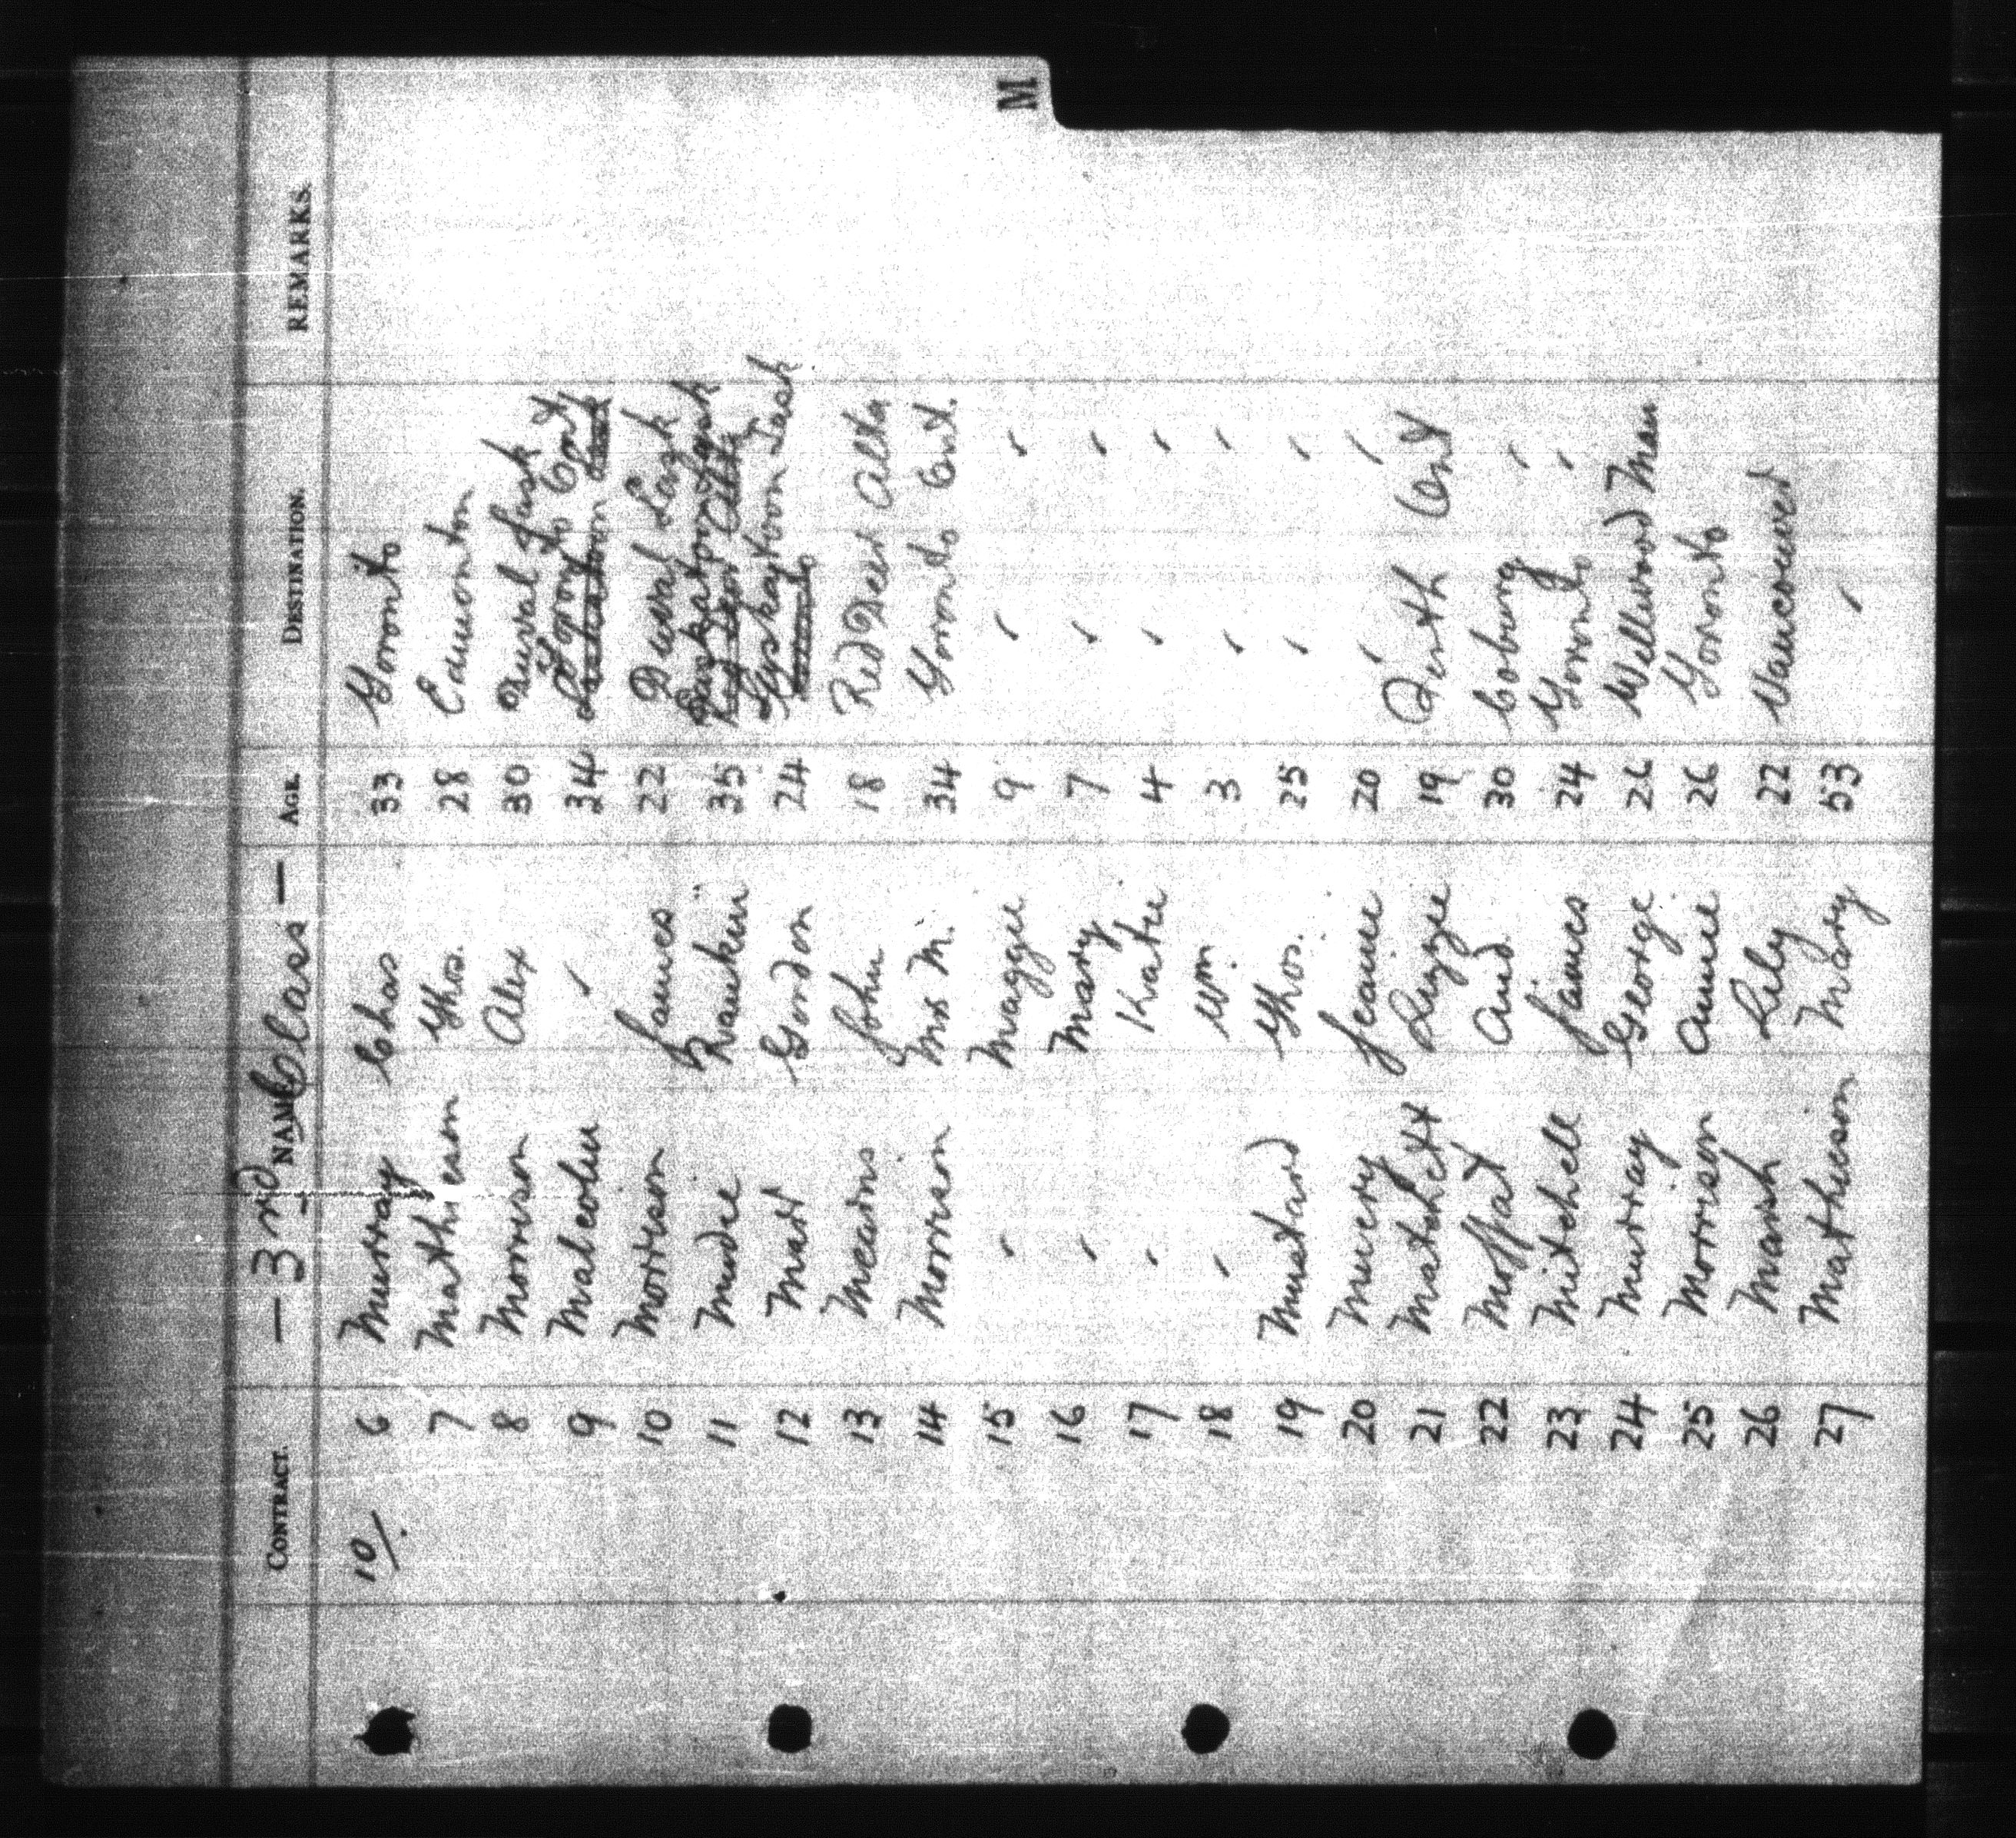 M.
— 3rd Class —
CONTRACT. NAME AGE. DESTINATION. REMARKS.
10/. 6 Murray Chas 33 Toronto
7 Mathieson Thos. 28 Edmonton
8 Morrison Alex 30 Duval Sask
9 Malcolm ✓ 34 Toronto Ont Saskatoon Sask
10 Morrison James 22 Duval Sask
11 Mudie 35 Saskatoon Sask Red Deer Alta
12 Marr Gordon 24 Saskatoon Sask Toronto
13 Mearns John 18 Red Deer Alta
14 Morrison Mrs M. 34 Toronto Ont.
15 ✓ Maggie 9 ✓ ✓
16 ✓ Mary 7 ✓ ✓
17 ✓ Katie 4 ✓ ✓
18 ✓ Wm. 3 ✓ ✓
19 Mustard Thos. 25 ✓ ✓
20 Jeanie 20 ✓ ✓
21 Matchett Lizzie 19 Perth Ont
22 Moffat And. 30 Coburg ✓
23 Mitchell James 24 Toronto ✓
24 Murray George 26 Wellwood Man
25 Morrison Annie 26 Toronto
26 Marsh Lily 22 Vancouver
27 Mathieson Mary 53 ✓